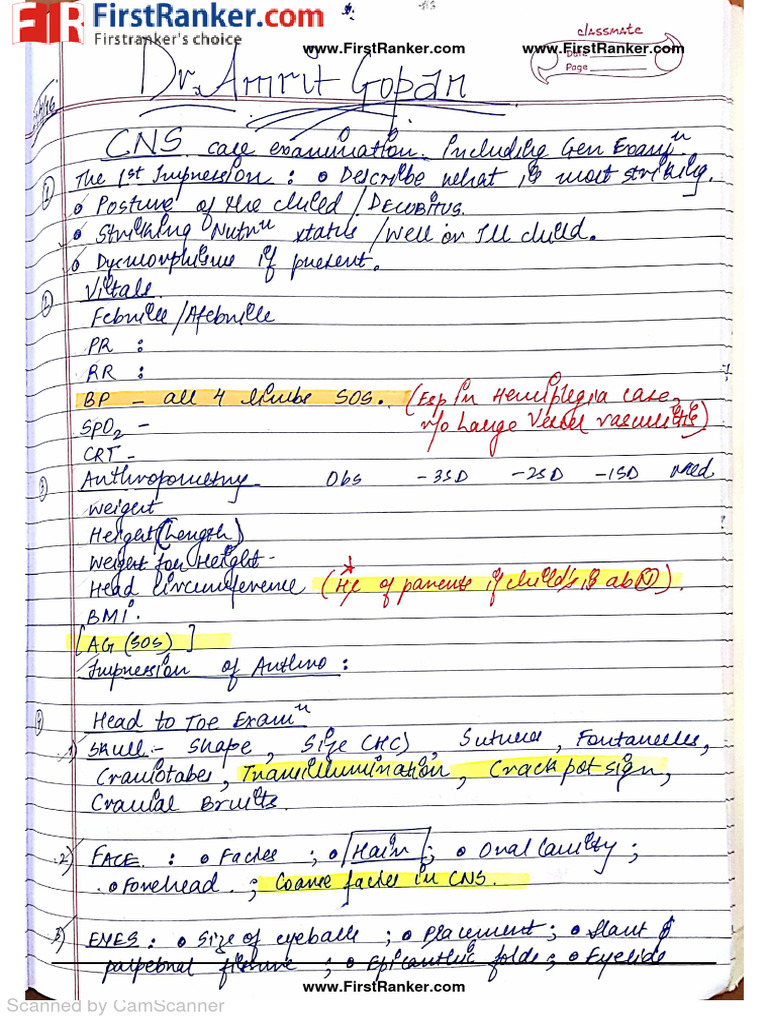 FirstRanker.com
Firstranker's choice
www.FirstRanker.com
www.FirstRanker.com
classmate
Date
Page
Dr. Amrit Gopan
CNS case examination. Including Gen Examn
① The 1st Impression : • Describe what is most striking.
• Posture of the child / Decubitus.
• Striking Nutrn status / Well or Ill child.
• Dysmorphisms if present.
② Vitals.
Febrille / Afebrille
PR :
RR :
BP - all 4 limbs SOS. (Esp in Hemiplegia case,
r/o Large Vessel vasculitis)
SPO2 -
CRT -
③ Anthropometry Obs -3SD -2SD -1SD Med
Weight
Height (Length)
Weight for Height -
Head Circumference (Hx of parents if child's is ab(N)).
BMI.
[AG (SOS)]
Impression of Anthro :
④ Head to Toe Examn
1) Skull - Shape, Size (HC), Sutures, Fontanelles,
Craniotabes, Transillumination, Crack pot sign,
Cranial Bruits.
2) FACE : • Facies ; • Hair ; • Oral Cavity ;
• Forehead ; Coarse facies in CNS.
3) EYES : • Size of eyeballs ; • Placement ; • Slant of
palpebral fissure ; • Epicanthic folds ; • Eyelids
www.FirstRanker.com
Scanned by CamScanner